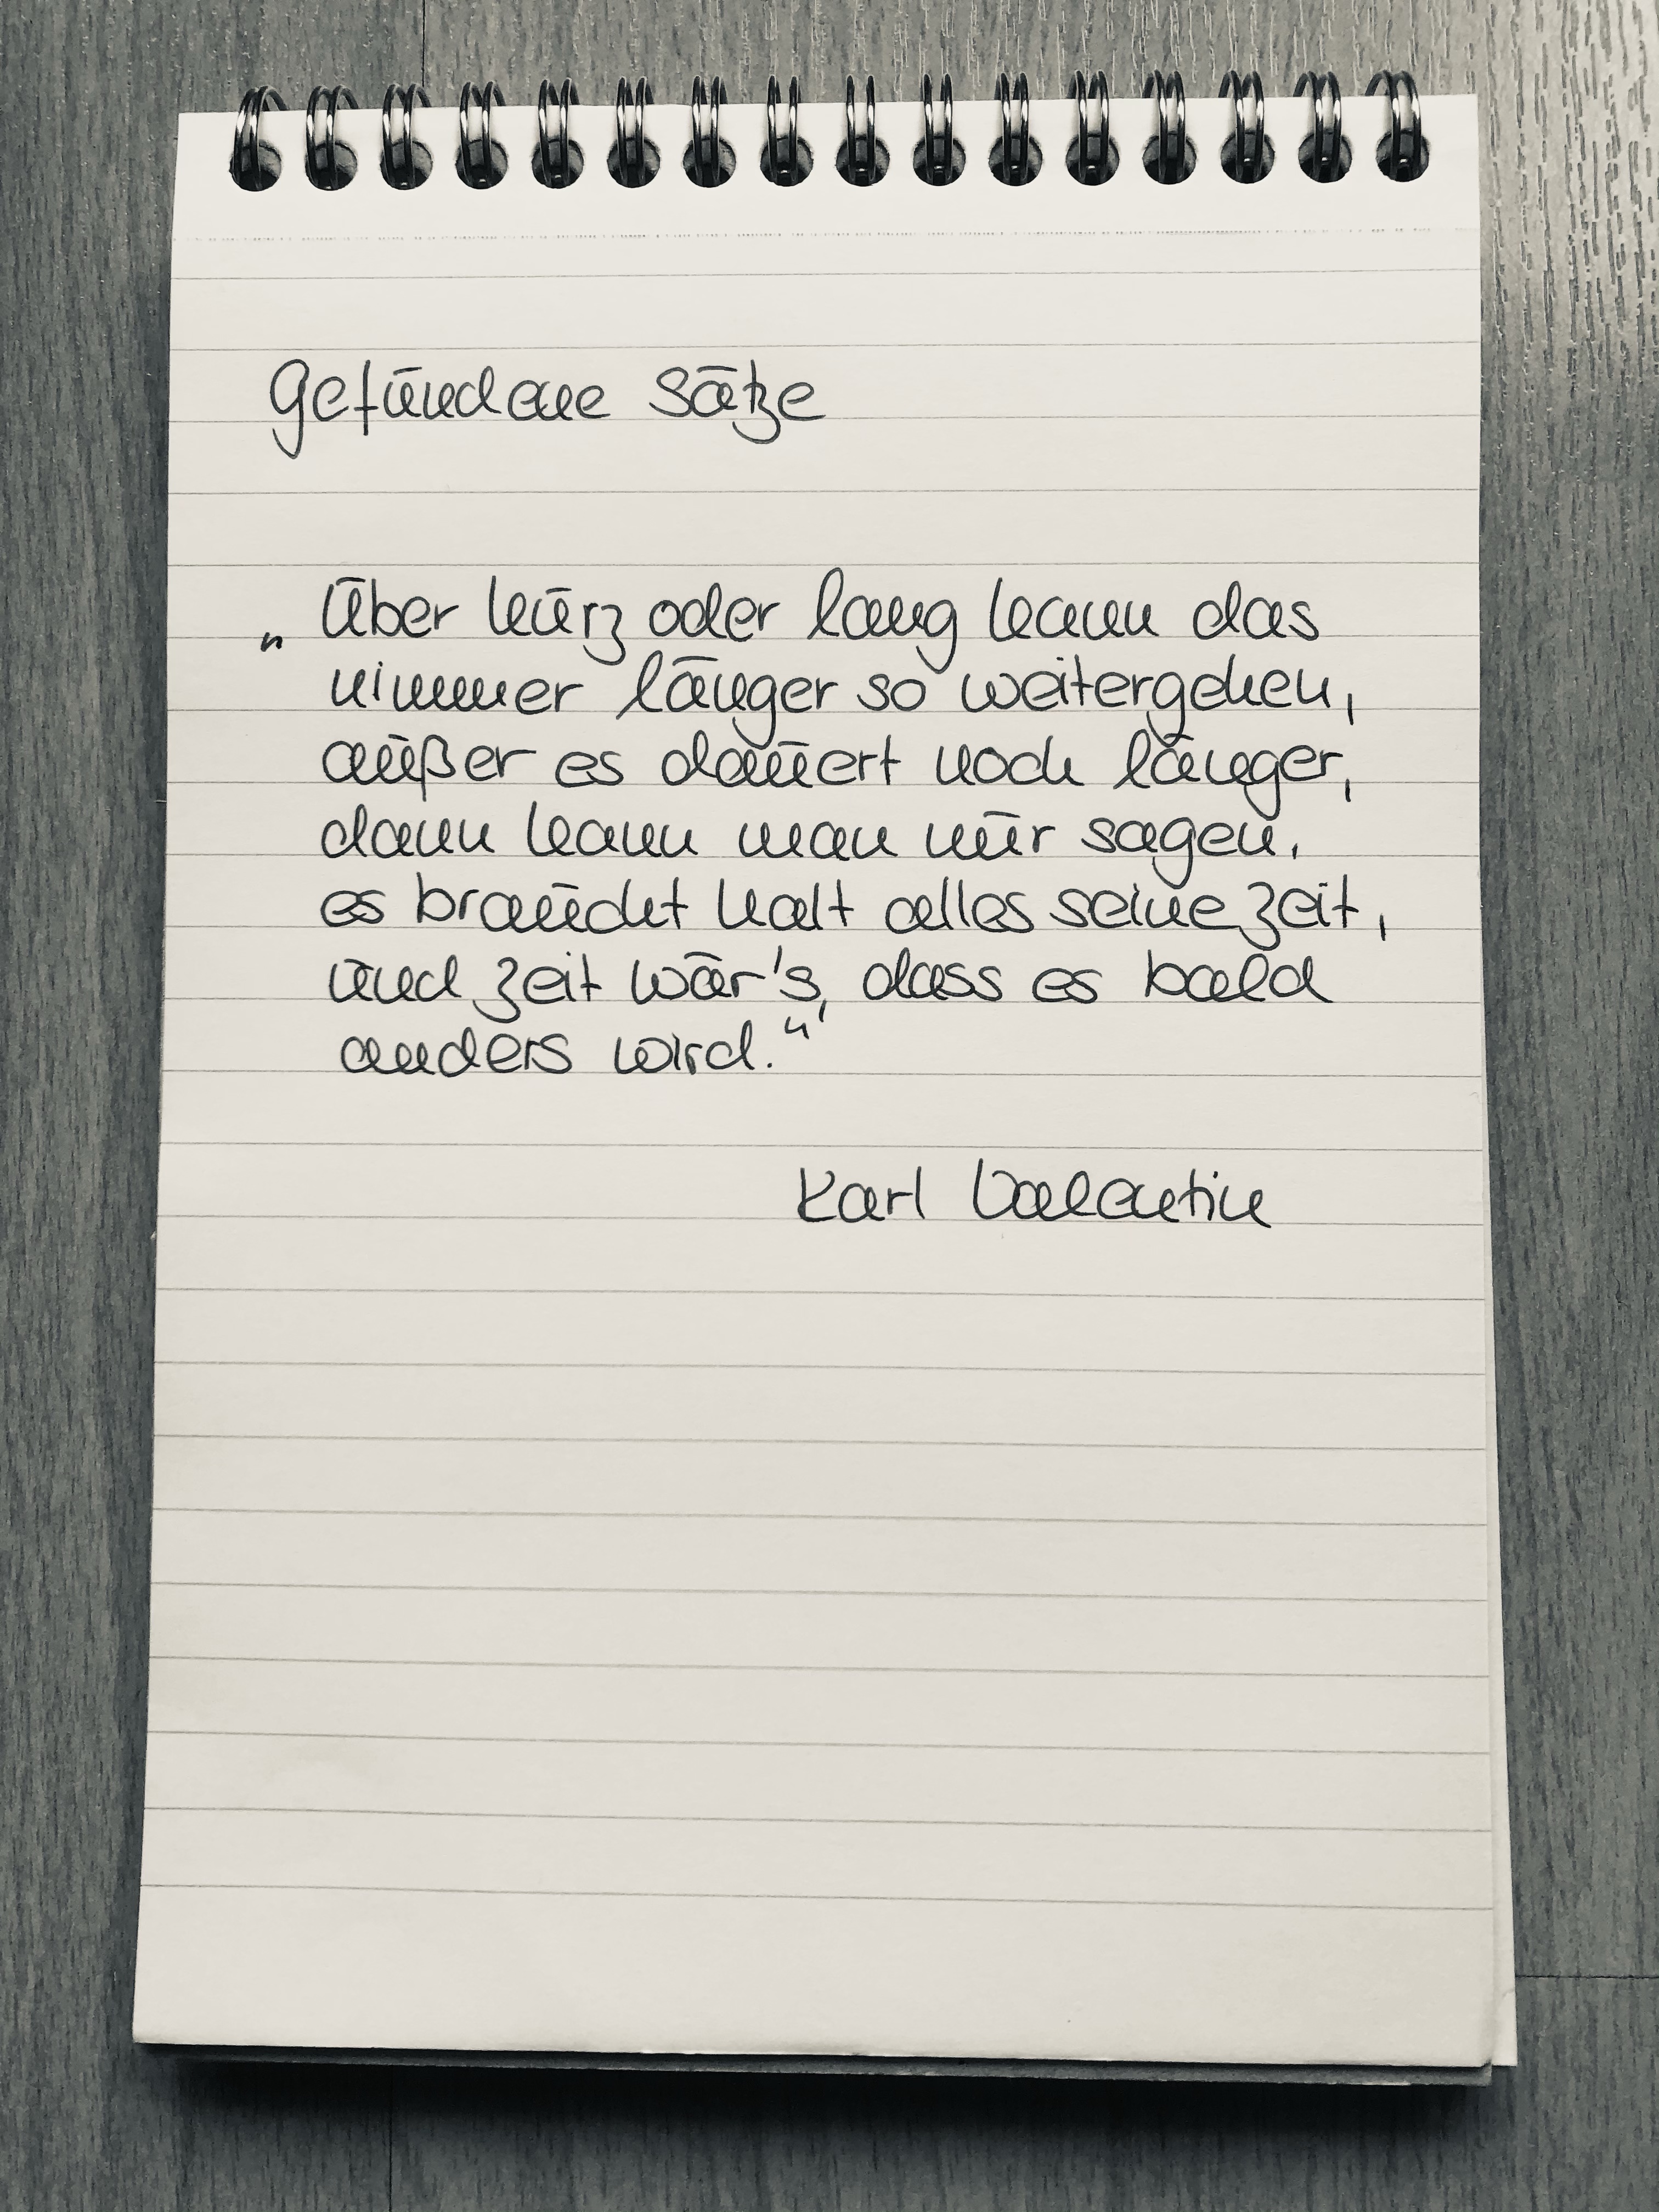 Gefundene Sätze
„Über kurz oder lang kann das
nimmer länger so weitergehen,
außer es dauert noch länger,
dann kann man nur sagen,
es braucht halt alles seine Zeit,
und Zeit wär's, dass es bald
anders wird."
Karl Valentin